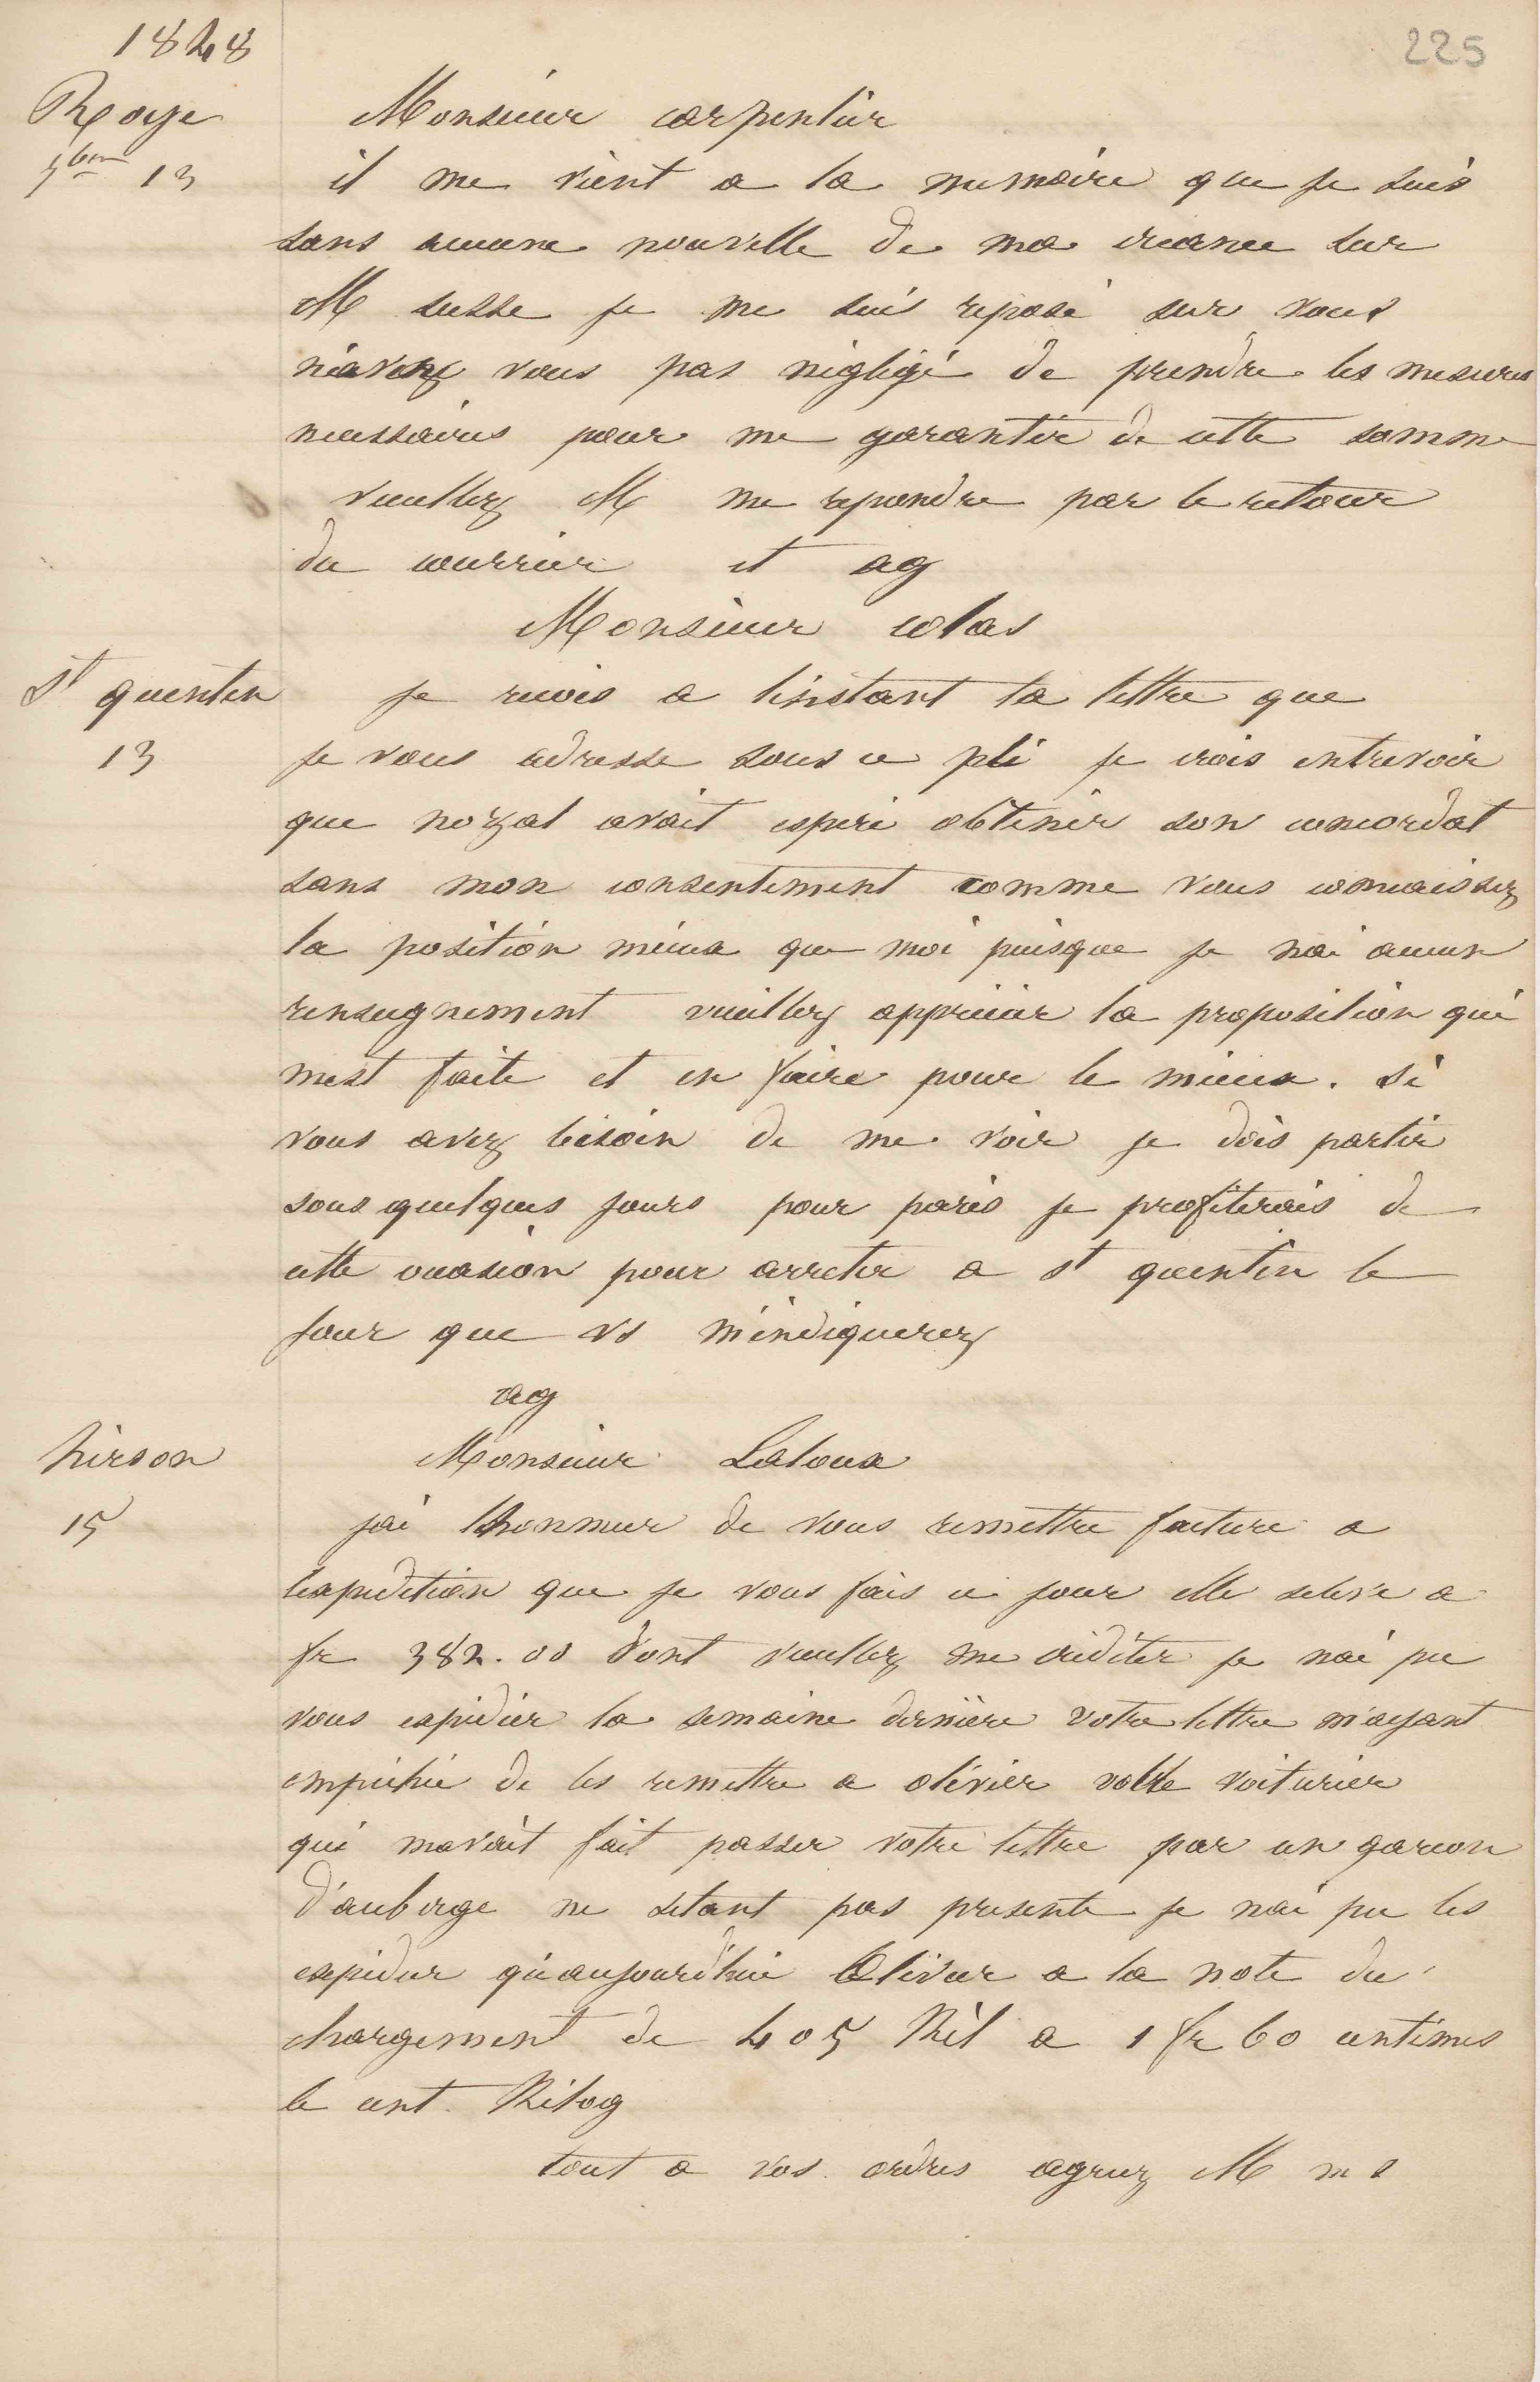 1848
225
Roye
Monsieur carpentier
9bre 13
il me vient a la memoire que je suis
sans aucune nouvelle de ma créance sur
M susse je me suis reposé sur vous
n'avez vous pas négligé de prendre les mesures
necessaires pour me garantir de cette somme
veuillez M me repondre par le retour
du courrier et ag
Monsieur colas
St quentin
je recois a linstant la lettre que
13
je vous adresse sous ce pli je crois entrevoir
que nozal avait espéré obtenir son concordat
sans mon consentement comme vous connaissez
la position mieux que moi puisque je nai aucun
renseignement veuillez apprécier la proposition qui
mest faite et en faire pour le mieux. si
vous avez besoin de me voir je dois partir
sous quelques jours pour paris je profiterais de
cette occasion pour arreter a st quentin le
jour que vs m'indiquerez
ag
hirson
Monsieur Laloux
15
jai lhonneur de vous remettre facture a
lexpedition que je vous fais ce jour elle seleve a
fr 382.00 dont veuillez me créditer je nai pu
vous expédier la semaine dernière votre lettre m'ayant
empéché de les remettre a olivier votre voiturier
qui mavait fait passer votre lettre par un garcon
d'auberge ne setant pas presente je nai pu les
expedier qu'aujourd'hui Olivier a la note du
chargement de 405 Kil a 1 fr 60 centimes
le cent Kilog
tout a vos ordres agreez M m s